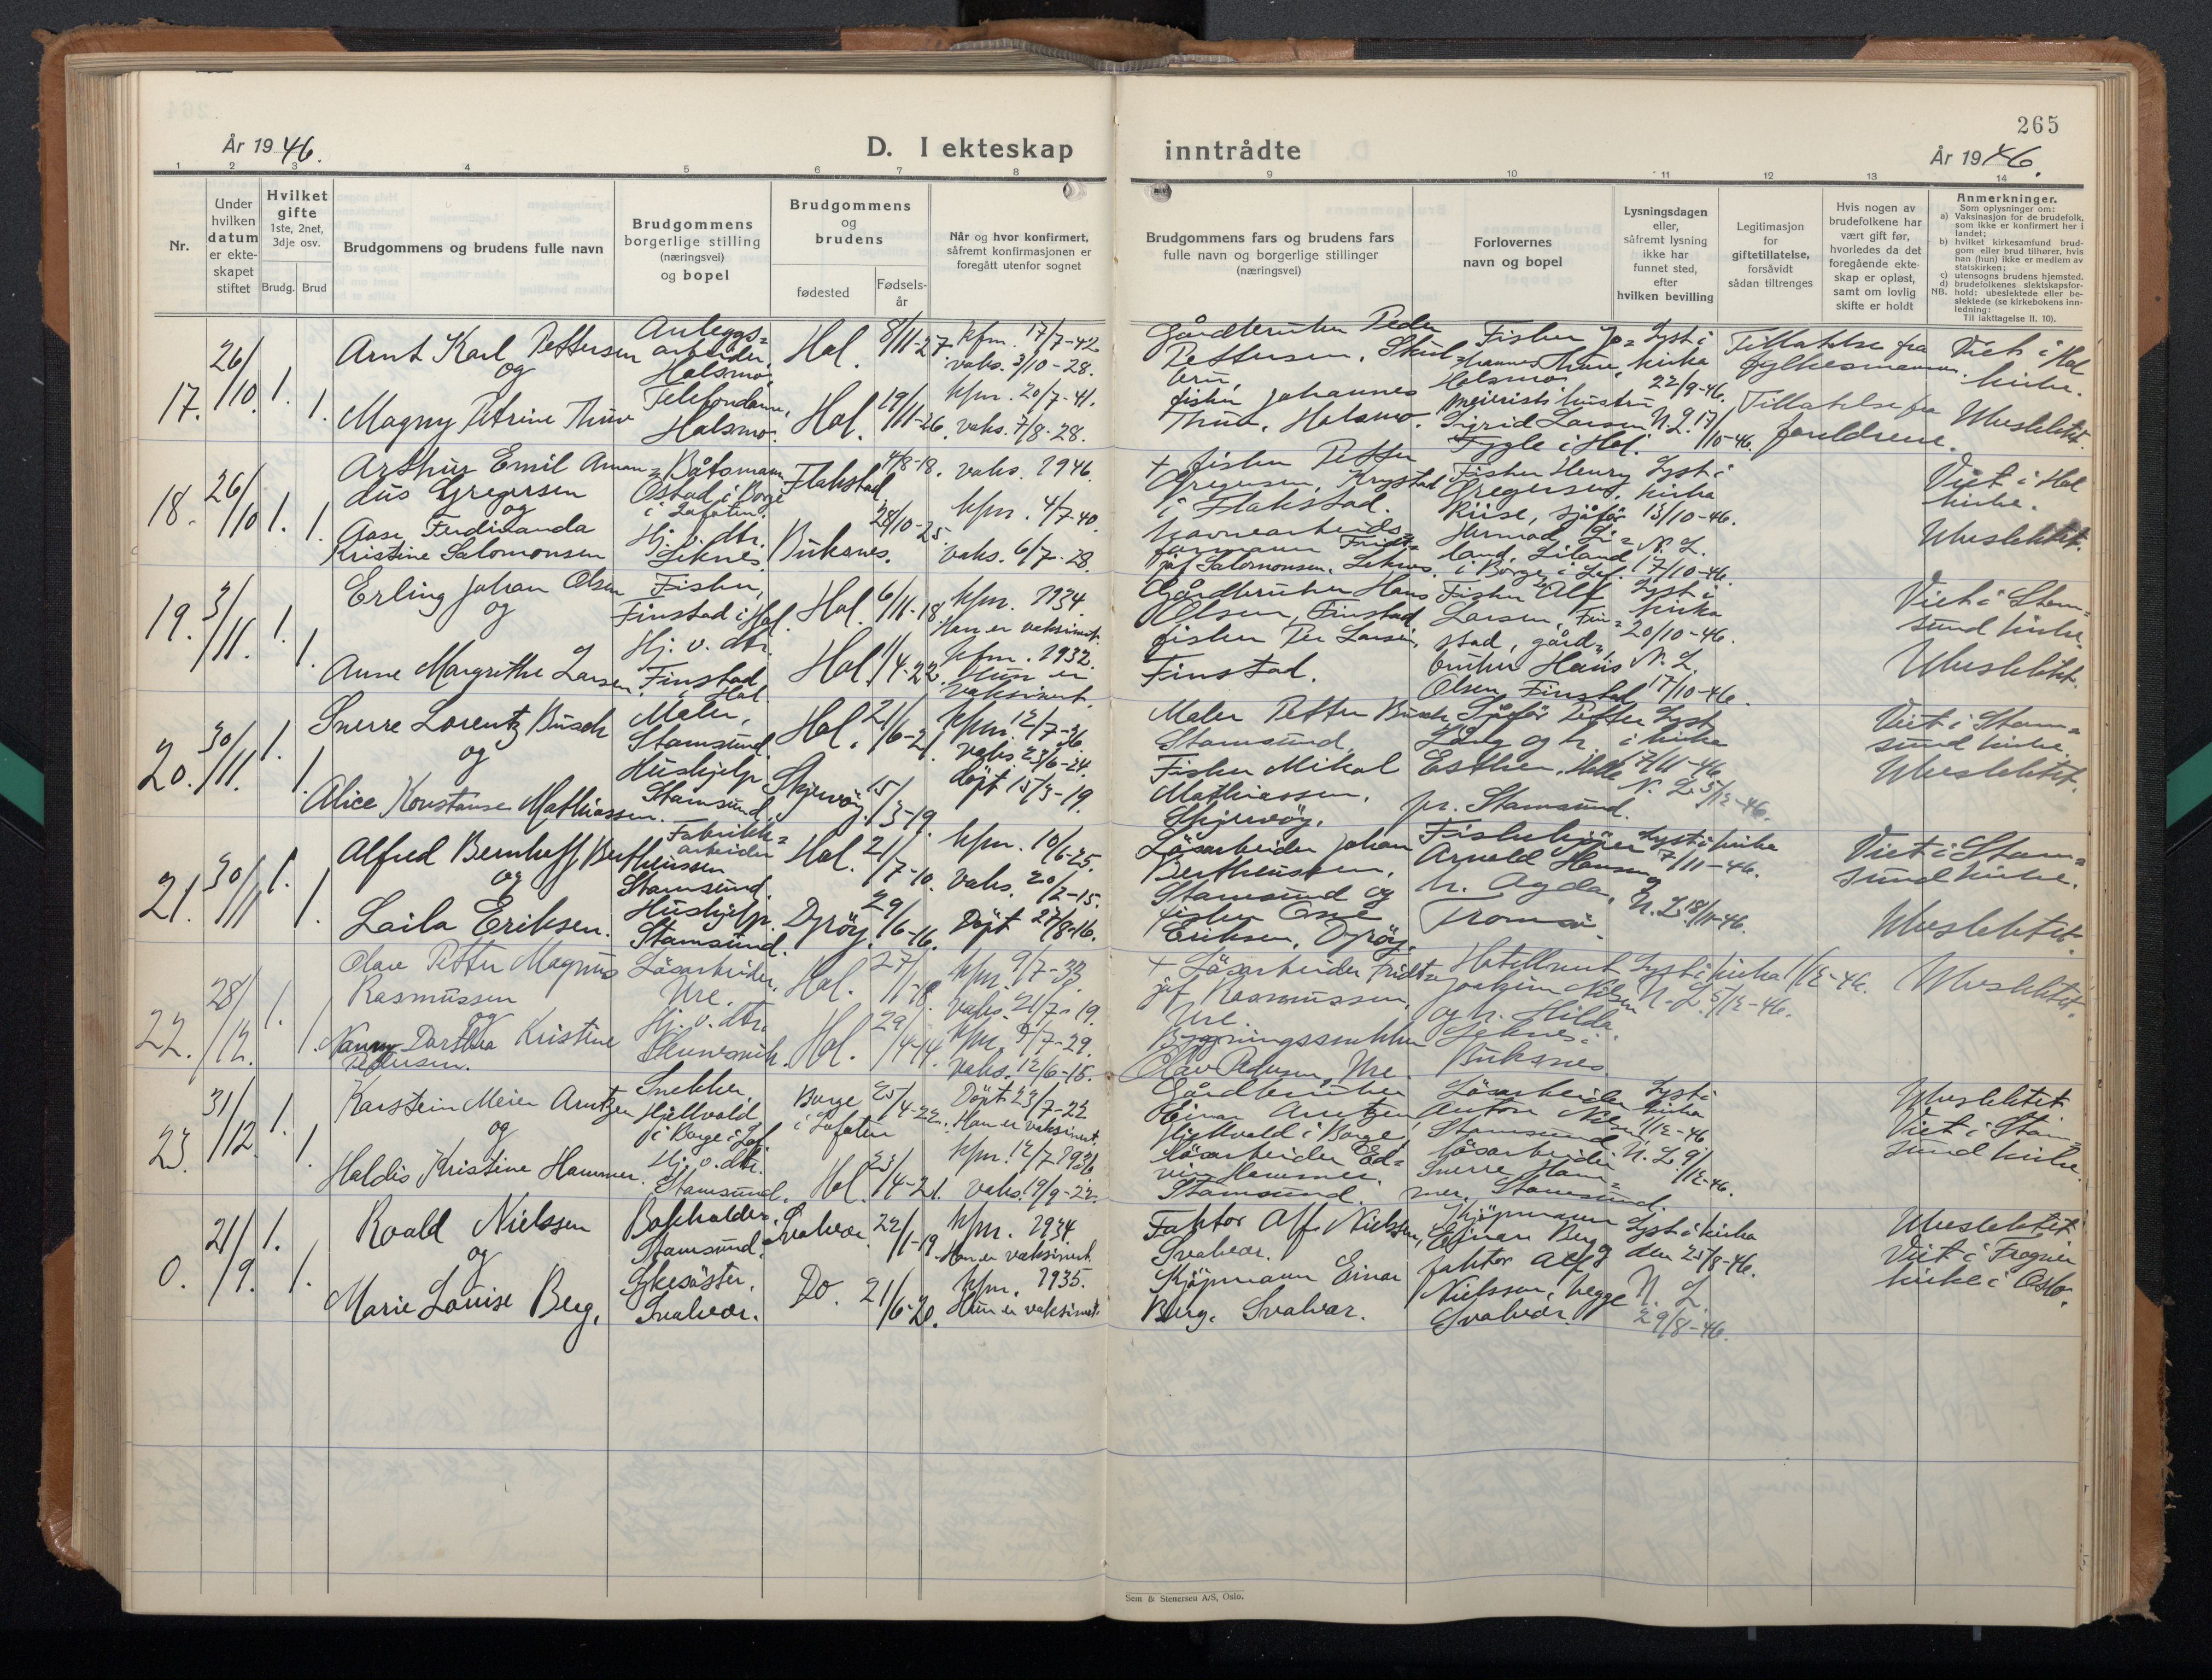 265
År 1946.
D. I ekteskap
inntrådte
År 1946.
1 2 3 4 5 6 7 8
9 10 11 12 13 14
Nr.
Under
hvilken
datum
er ekte-
skapet
stiftet
Hvilket
gifte
1ste, 2net,
3dje osv.
Brudg.
Brud
Brudgommens og brudens fulle navn
Brudgommens
borgerlige stilling
(næringsvei)
og bopel
Brudgommens
og
brudens
fødested
Fødsels-
år
Når og hvor konfirmert,
såfremt konfirmasjonen er
foregått utenfor sognet
Brudgommens fars og brudens fars
fulle navn og borgerlige stillinger
(næringsvei)
Forlovernes
navn og bopel
Lysningsdagen
eller,
såfremt lysning
ikke har
funnet sted,
efter
hvilken bevilling
Legitimasjon
for
giftetillatelse,
forsåvidt
sådan tiltrenges
Hvis nogen av
brudefolkene har
vært gift før,
hvorledes da det
foregående ekte-
skap er opløst,
samt om lovlig
skifte er holdt
Anmerkninger.
Som oplysninger om:
a) Vaksinasjon for de brudefolk,
som ikke er konfirmert her i
landet;
b) hvilket kirkesamfund brud-
gom eller brud tilhører, hvis
han (hun) ikke er medlem av
statskirken;
c) utensogns brudens hjemsted.
d) brudefolkenes slektskapsfor-
NB. hold: ubeslektede eller be-
slektede (se kirkebokens inn-
ledning:
Til iakttagelse II. 10).
17.
26/10.
1.
1.
Arnt Karl Pettersen
og
Magny Petrine Thun
Anleggs=
arbeider,
Holsmo.
Telefondame,
Holsmo.
Hol.
Hol.
8/11-27.
19/11-26.
kfm. 17/7-42
vaks. 3/10-28.
kfm. 20/7-41.
vaks. 7/8-28.
Gårdbruker Peder
Pettersen, Skul=
bru,
fisker Johannes
Thun, Holsmo.
Fisker Jo=
hannes Thun,
Holsmo.
Meierist hustru
Sigrid Larsen
Fygle i Hol.
Lyst i
kirka
22/9-46.
N. L. 17/10-46.
Tillatelse fra
fylkesmannen.
Tillatelse fra
foreldrene.
Viet i Hol
kirke.
Ubeslektet.
18.
26/10
1.
1.
Arthur Emil Aman=
dus Gregersen
og
Aase Ferdinanda
Kristine Salomonsen
Båtsmann
Østad i Borge
i Lofoten.
Hj. v. dtr.
Leknes.
Flakstad
Buksnes.
4/8-18.
28/10-25.
vaks. 1946
kfm. 4/7-40.
vaks. 6/7-28.
+ fisker Petter
Gregersen, Krystad
i Flakstad.
havnearbeids=
formann Fridt=
jof Salomonsen, Leknes.
Fisker Henry
Gregersen,
Riise, sjåfør
Hermod Li=
land, Liland
i Borge i Lof.
Lyst i
kirka
13/10-46.
N. L.
17/10-46.
Viet i Hol
kirke.
Ubeslektet.
19.
3/11.
1.
1.
Erling Johan Olsen
og
Anne Margrethe Larsen.
Fisker,
Finstad i Hol.
Hj. v. dtr.
Finstad
i Hol.
Hol.
Hol.
6/11-18.
1/4-22.
kfm. 1934.
Han er vaksinert.
kfm. 1932.
Hun er
vaksinert.
Gårdbruker Hans
Olsen, Finstad
fisker Per Larsen,
Finstad.
Fisker Alf
Larsen, Fin=
stad, gård=
bruker Hans
Olsen, Finstad
Lyst i
kirka
20/10-46.
N. L.
17/10-46.
Viet i Stam=
sund kirke.
Ubeslektet.
20.
30/11.
1.
1.
Sverre Lorentz Busch
og
Alice Konstanse Mathiassen.
Maler,
Stamsund.
Hushjelp
Stamsund.
Hol.
Skjervøy.
21/6-21.
15/3-19.
kfm. 12/7-36.
vaks. 23/6-24.
døpt 15/3-19.
Maler Petter Busch
Stamsund.
Fisker Mikal
Mathiassen,
Skjervøy.
Sjåfør Petter
Lyng og h.
Esther,
pr. Stamsund.
Lyst
i kirka
17/11-46
N. L. 5/12-46.
Viet i Stam=
sund kirke.
Ubeslektet.
21.
30/11
1.
1.
Alfred Bernhoff Bertheussen
og
Laila Eriksen.
Fabrikk=
arbeider
Stamsund.
Hushjelp.
Stamsund.
Hol.
Dyrøy.
21/7-10.
29/6-16.
kfm. 10/6-25.
vaks. 20/2-15.
Døpt 27/8-16.
Løsarbeider Johan
Bertheussen,
Stamsund og
fisker
Eriksen, Dyrøy.
Fiskekjøper
Arnold Hansen og
h. Agda,
Tromsø.
Lyst i kirka
17/11-46.
N. L. 18/11-46.
Viet i Stam=
sund kirke.
Ubeslektet.
22.
28/12.
1.
1.
Olav Petter Magnus
Rasmussen
og
Nanny Dorthea Kristine
Pedersen.
Løsarbeider,
Ure.
Hj. v. dtr.
Hol.
Hol.
27/1-18.
29/4-14.
kfm. 9/7-33.
vaks. 21/7-19.
kfm. 7/7-29.
vaks. 12/6-15.
+ Løsarbeider Fridt=
jof Rasmussen,
Ure.
Bygningssnekker
Olav Pedersen, Ure.
Hotellvert
Joakim Nilsen
og h. Hilda
Leknes i
Buksnes
Lyst i kirka 1/12-46.
N. L. 5/12-46.
Ubeslektet.
23.
31/12.
1.
1.
Karstein Meier Arntzen
og
Haldis Kristine Hammer.
Snekker
Hjellvold
i Borge i Lof.
Hj. v. dtr.
Stamsund.
Borge
i Lofoten
Hol.
25/4-22.
23/4-21.
Døpt 23/7-22
Han er vaksinert.
kfm. 12/7 1936
vaks. 19/9-22.
Gårdbruker
Einar Arntzen,
Hjellvold i Borge,
løsarbeider Ed=
vin Hammer,
Stamsund.
Løsarbeider
Anton Nilsen,
Stamsund
løsarbeider
Sverre Ham=
mer, Stamsund.
Lyst i
kirka
1/12-46
N. L. 9/12-46.
Ubeslektet
Viet i Stam=
sund kirke.
0.
21/9.
1.
1.
Roald Nielssen
og
Marie Louise Berg.
Bokholder,
Stamsund.
Sykesøster,
Svolvær.
Svolvær.
Do.
22/1-19.
21/6-20.
kfm. 1934.
Han er vaksinert.
kfm. 1935.
Hun er vaksinert.
Faktor Alf Nielssen,
Svolvær.
Kjøpmann Einar
Berg, Svolvær.
Kjøpmann
Einar Berg
faktor Alf
Nielssen, begge
Svolvær.
Lyst i kirka
den 25/8-46.
N. L.
29/8-46.
Ubeslektet.
Viet i Frogner
kirke i Oslo.
Sem & Stenersen A/S, Oslo.